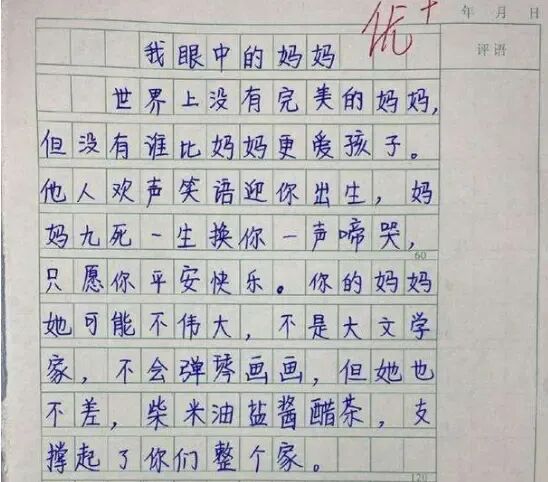 年 月 日
优+
评语
我眼中的妈妈
世界上没有完美的妈妈,
但没有谁比妈妈更爱孩子。
他人欢声笑语迎你出生,妈
妈九死一生换你一声啼哭,
60
只愿你平安快乐。你的妈妈
她可能不伟大,不是大文学
家,不会弹琴画画,但她也
不差,柴米油盐酱醋茶,支
撑起了你们整个家。
120